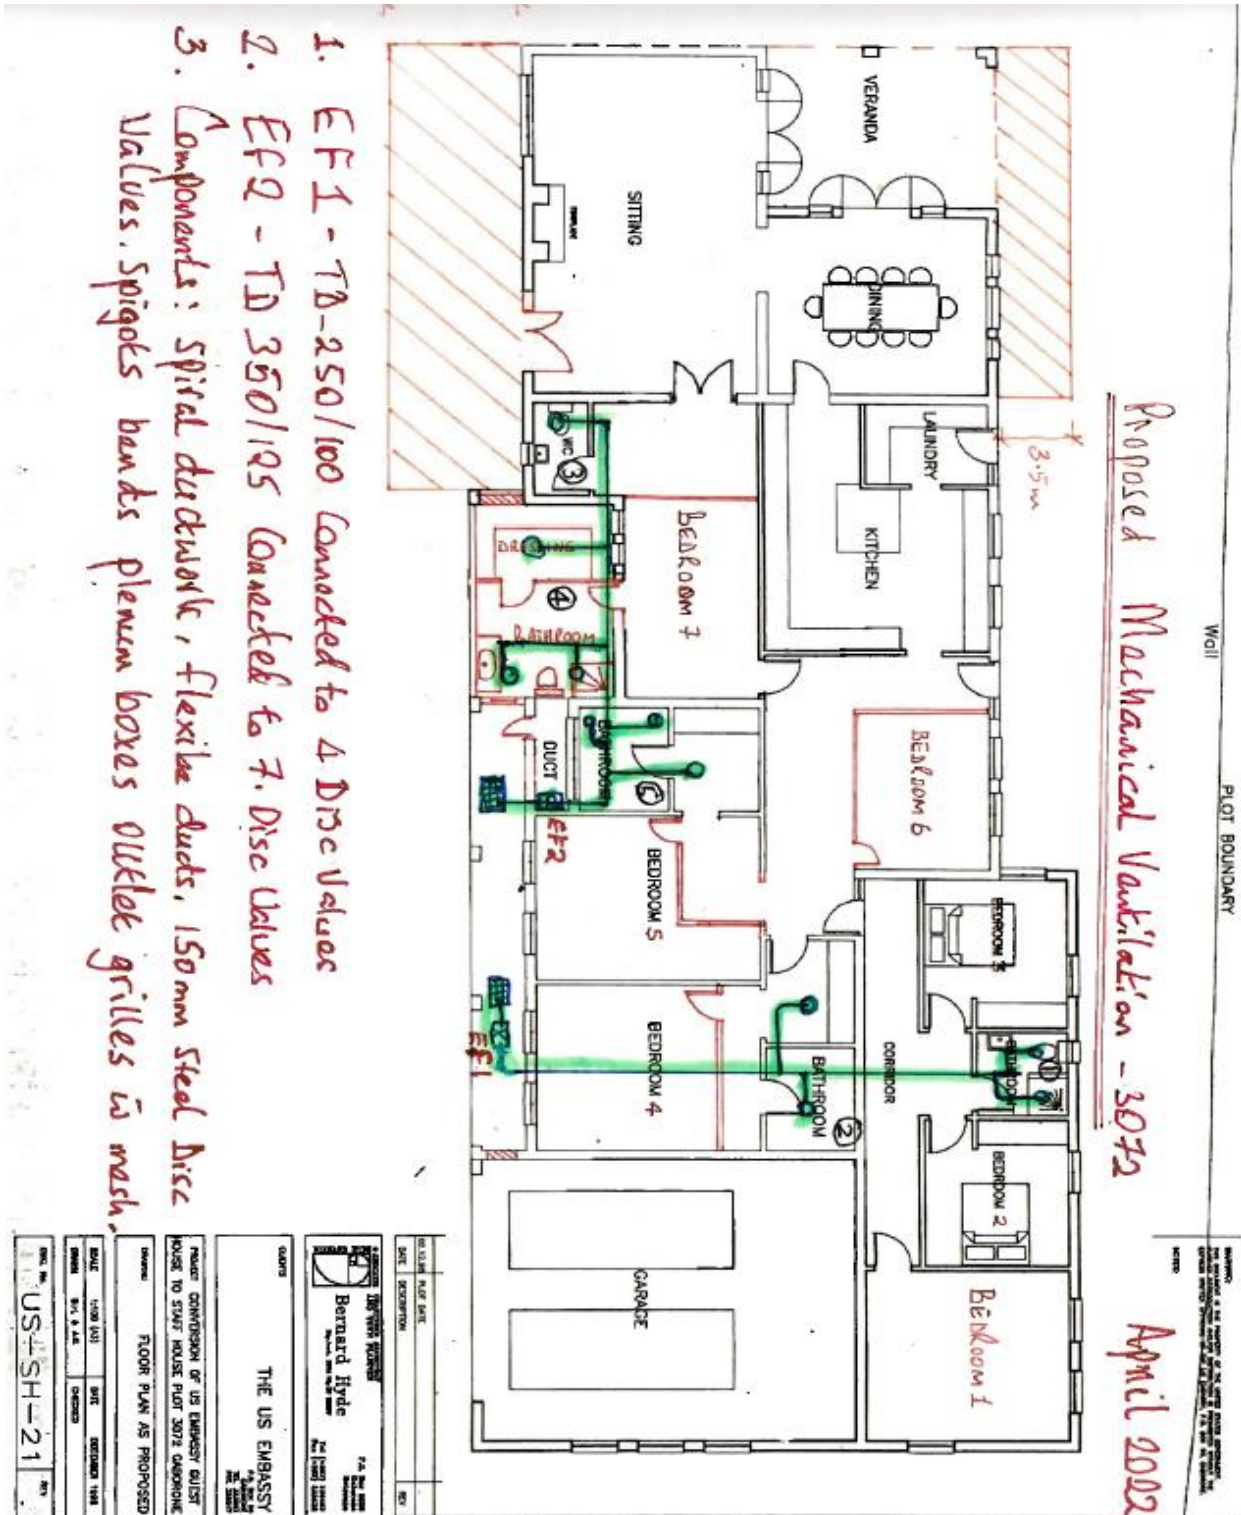 Proposed Mechanical Ventilation - 3072
April 2022
Wall
PLOT BOUNDARY
3.5m
VERANDA
SITTING
DINING
LAUNDRY
KITCHEN
WC
3
BEDROOM 7
DRESSING
4
BATHROOM
BEDROOM 6
BATHROOM
5
DUCT
EF2
BEDROOM 5
BEDROOM 3
BEDROOM 4
EF1
BATHROOM
2
CORRIDOR
BATHROOM
1
BEDROOM 2
BEDROOM 1
GARAGE
1. EF1 - TD-250/100 Connected to 4 Disc Valves
2. EF2 - TD 350/125 Connected to 7. Disc Valves
3. Components: Spiral ductwork, flexible ducts, 150mm Steel Disc
Valves. Spigots bends plenum boxes outlet grilles w mesh.
NOTES
PLOT DATE
DATE DESCRIPTION REV
Bernard Hyde
CLIENTS
THE US EMBASSY
PROJECT CONVERSION OF US EMBASSY GUEST
HOUSE TO STAFF HOUSE PLOT 3072 GABORONE
DRAWING
FLOOR PLAN AS PROPOSED
SCALE 1:100 (A3) DATE DECEMBER 1998
DRAWN CHECKED
DRG. No. US-SH-21 REV